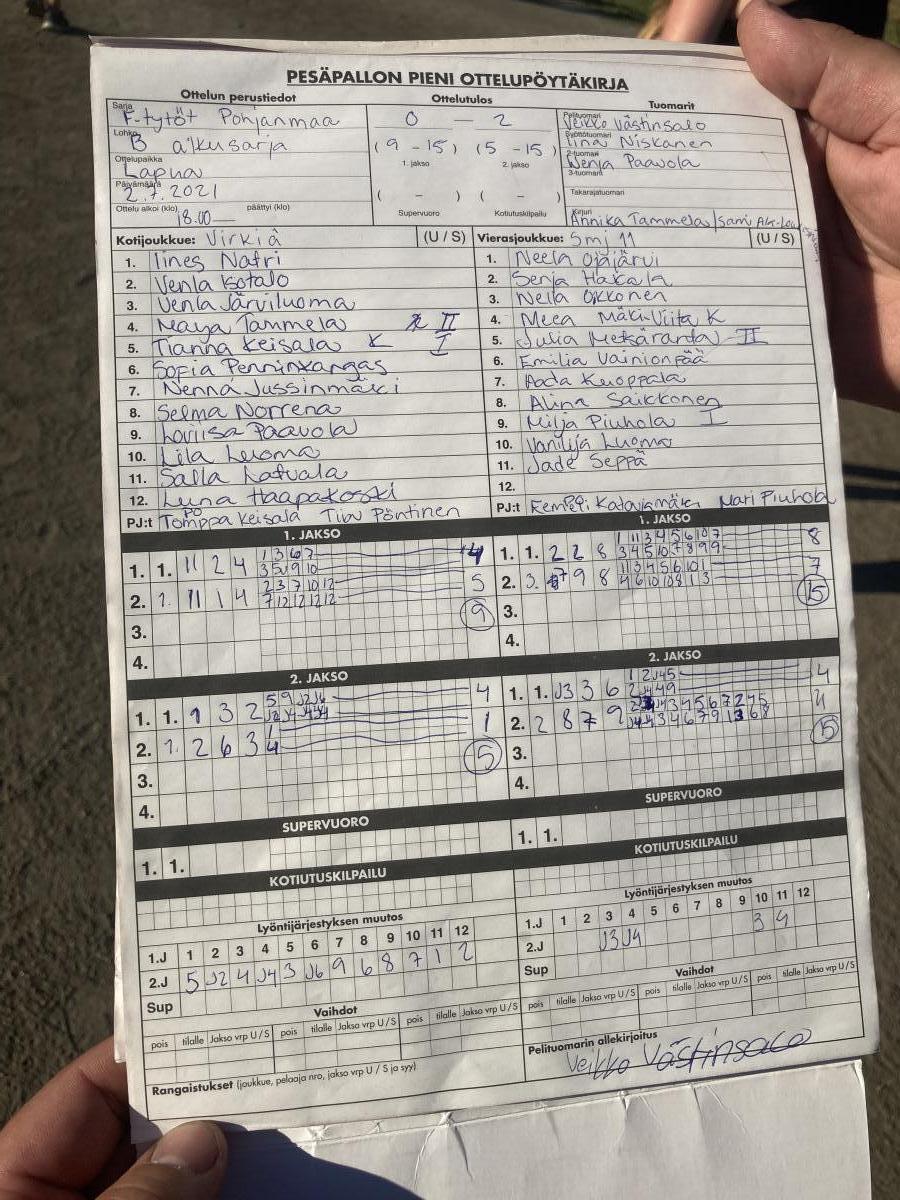 PESÄPALLON PIENI OTTELUPÖYTÄKIRJA
Ottelun perustiedot Ottelutulos Tuomarit
Sarja F-tytöt Pohjanmaa
Lohko B alkusarja
Ottelupaikka Lapua
Päivämäärä 2.7.2021
Ottelu alkoi (klo) 18.00 päättyi (klo)
0 — 2
(9 - 15) (5 - 15)
1. jakso 2. jakso
( - ) ( - )
Supervuoro Kotiutuskilpailu
Pelituomari Veikko Västinsalo
Syöttötuomari Iina Niskanen
2-tuomari Venja Paavola
3-tuomari
Takarajatuomari
Kirjuri Annika Tammela / Sami
Kotijoukkue: Virkiä (U / S)
1. Iines Natri
2. Venla Isotalo
3. Venla Järviluoma
4. Maya Tammela II
5. Tianna Keisala K I
6. Sofia Penninkangas
7. Nenna Jussinmäki
8. Selma Norrena
9. Loviisa Paavola
10. Lila Luoma
11. Salla Latvala
12. Luna Haapakoski
PJ:t Tomppa Keisala Tiia Pöntinen
Vierasjoukkue: Smj 11 (U / S)
1. Neela Ojajärvi
2. Senja Hakala
3. Nella Oikkonen
4. Meea Mäki-Viita K
5. Julia Metsäranta II
6. Emilia Vainionpää
7. Aada Kuoppala
8. Alina Saikkonen
9. Milja Piuhola I
10. Vanilja Luoma
11. Jade Seppä
12.
PJ:t Katajamäki, Mari Piuhola
1. JAKSO
1. 1. 11 2 4 1 3 6 7 4
3 5 9 10
2. 1. 11 1 4 2 3 7 10 12 5
7 12 12 12 12
3. 9
4.
1. JAKSO
1. 1. 2 2 8 8
2. 3. 9 8 7
3. 15
4.
2. JAKSO
1. 1. 1 3 2 4
2. 1. 2 6 3 1
4
3. 5
4.
2. JAKSO
1. 1. J3 3 6 1 2 J4 5 4
2 J4 4 9
2. 2 8 7 9 11
3. 15
4.
SUPERVUORO
1. 1.
KOTIUTUSKILPAILU
SUPERVUORO
1. 1.
KOTIUTUSKILPAILU
Lyöntijärjestyksen muutos
1.J 1 2 3 4 5 6 7 8 9 10 11 12
2.J 5 J2 4 J4 3 J6 9 6 8 7 1 2
Sup
Vaihdot
pois tilalle Jakso vrp U / S pois tilalle Jakso vrp U / S pois tilalle Jakso vrp U / S
Rangaistukset (joukkue, pelaaja nro, jakso vrp U / S ja syy)
Lyöntijärjestyksen muutos
1.J 1 2 3 4 5 6 7 8 9 10 11 12
2.J J3 J4 3 4
Sup
Vaihdot
pois tilalle Jakso vrp U / S pois tilalle Jakso vrp U / S pois tilalle Jakso vrp U / S
Pelituomarin allekirjoitus
Veikko Västinsalo